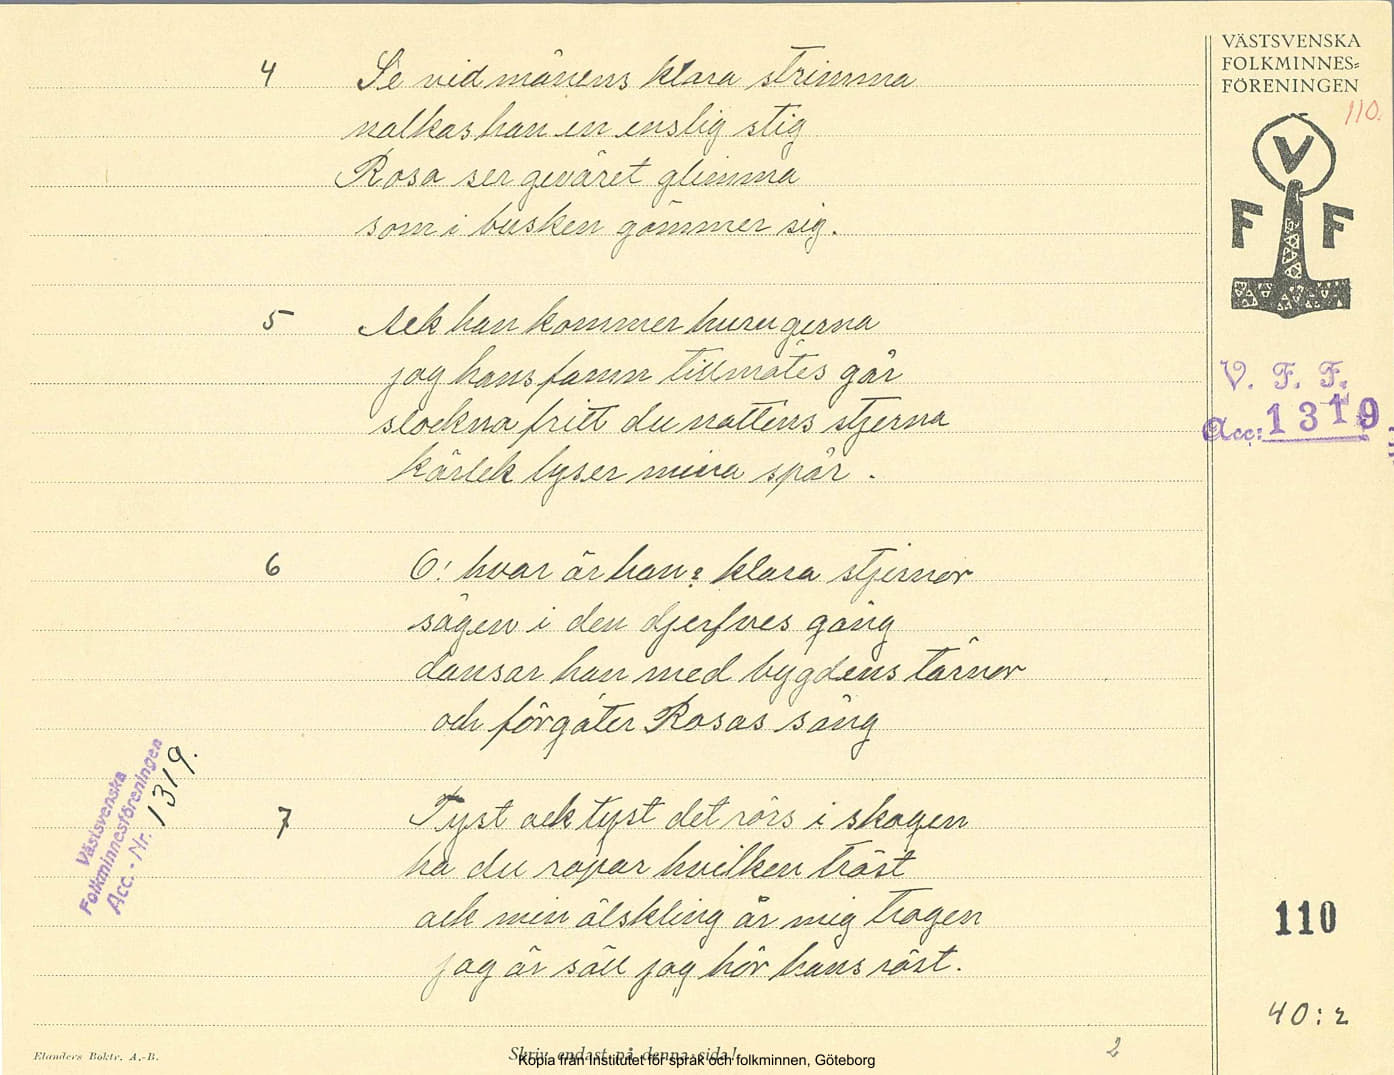 VÄSTSVENSKA
FOLKMINNES=
FÖRENINGEN
110.
V
F F
V. F. F.
Acc: 1319
4 Se vid månens klara strimma
nalkas han en enslig stig
Rosa ser geväret glimma
som i busken gömmer sig.
5 Ack han kommer huru gerna
jag hans famn tillmötes går
slockna fritt du nattens stjerna
kärlek lyser mina spår.
6 O! hvar är han? klara stjernor
sägen i den djerfves gång
dansar han med bygdens tärnor
och förgäter Rosas sång
7 Tyst ack tyst det rörs i skogen
ha du ropar hvilken tröst
ack min älskling är mig trogen
jag är säll jag hör hans röst.
Västsvenska
Folkminnesföreningen
Acc. - Nr. 1319.
110
40:2
Elanders Boktr. A.-B.
Skriv endast på denna sida!
Kopia från Institutet för språk och folkminnen, Göteborg
2